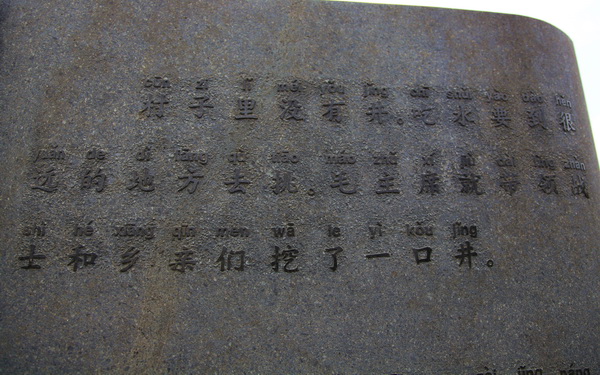 cūn zi lǐ méi yǒu jǐng chī shuǐ yào dào hěn
村子里没有井。吃水要到很
yuǎn de dì fāng qù tiāo máo zhǔ xí jiù dài lǐng zhàn
远的地方去挑。毛主席就带领战
shì hé xiāng qīn men wā le yì kǒu jǐng
士和乡亲们挖了一口井。